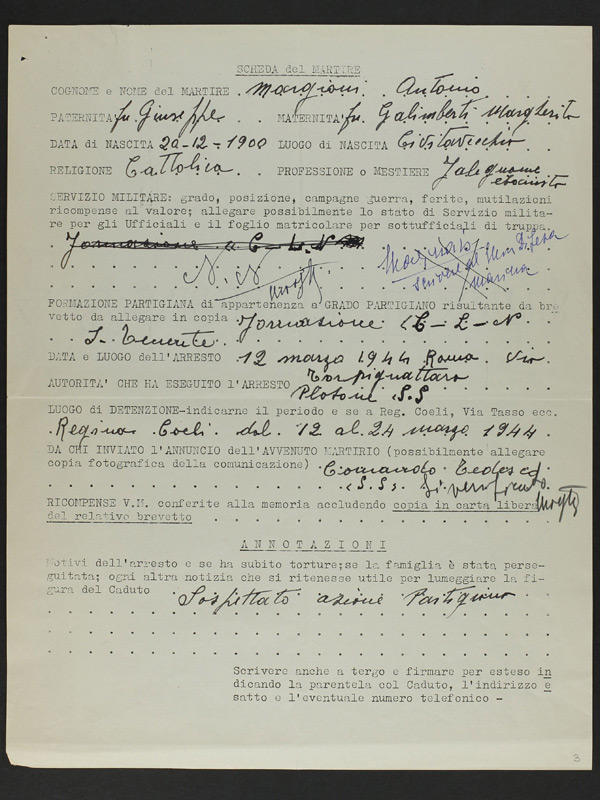 SCHEDA del MARTIRE
COGNOME e NOME del MARTIRE . Margioni . Antonio
PATERNITA' fu Giuseppe . . MATERNITA' fu Galimberti Margherita
DATA di NASCITA 20-12-1900 LUOGO di NASCITA Civitavecchia
RELIGIONE Cattolica . . PROFESSIONE o MESTIERE Falegname
ebanista
SERVIZIO MILITARE: grado, posizione, campagne guerra, ferite, mutilazioni
ricompense al valore; allegare possibilmente lo stato di Servizio milita-
re per gli Ufficiali e il foglio matricolare per sottufficiali di truppa.
Formazione a C-L-N
N. N. moglie
FORMAZIONE PARTIGIANA di appartenenza e GRADO PARTIGIANO risultante da bre
vetto da allegare in copia Formazione C-L-N
S-Tenente
DATA e LUOGO dell'ARRESTO . 12 marzo 1944 Roma . Via
AUTORITA' CHE HA ESEGUITO l'ARRESTO Torpignattara
Plotone S.S
LUOGO di DETENZIONE-indicarne il periodo e se a Reg. Coeli, Via Tasso ecc.
. Regina . Coeli . dal . 12 al 24 marzo 1944 .
DA CHI INVIATO l'ANNUNCIO dell'AVVENUTO MARTIRIO (possibilmente allegare
copia fotografica della comunicazione) . Comando Tedesco
(S.S)
RICOMPENSE V.M. conferite alla memoria accludendo copia in carta libera
del relativo brevetto
ANNOTAZIONI
Motivi dell'arresto e se ha subito torture;se la famiglia è stata perse-
guitata; ogni altra notizia che si ritenesse utile per lumeggiare la fi-
gura del Caduto Sospettato azione Partigiana
Scrivere anche a tergo e firmare per esteso in
dicando la parentela col Caduto, l'indirizzo e
satto e l'eventuale numero telefonico -
3